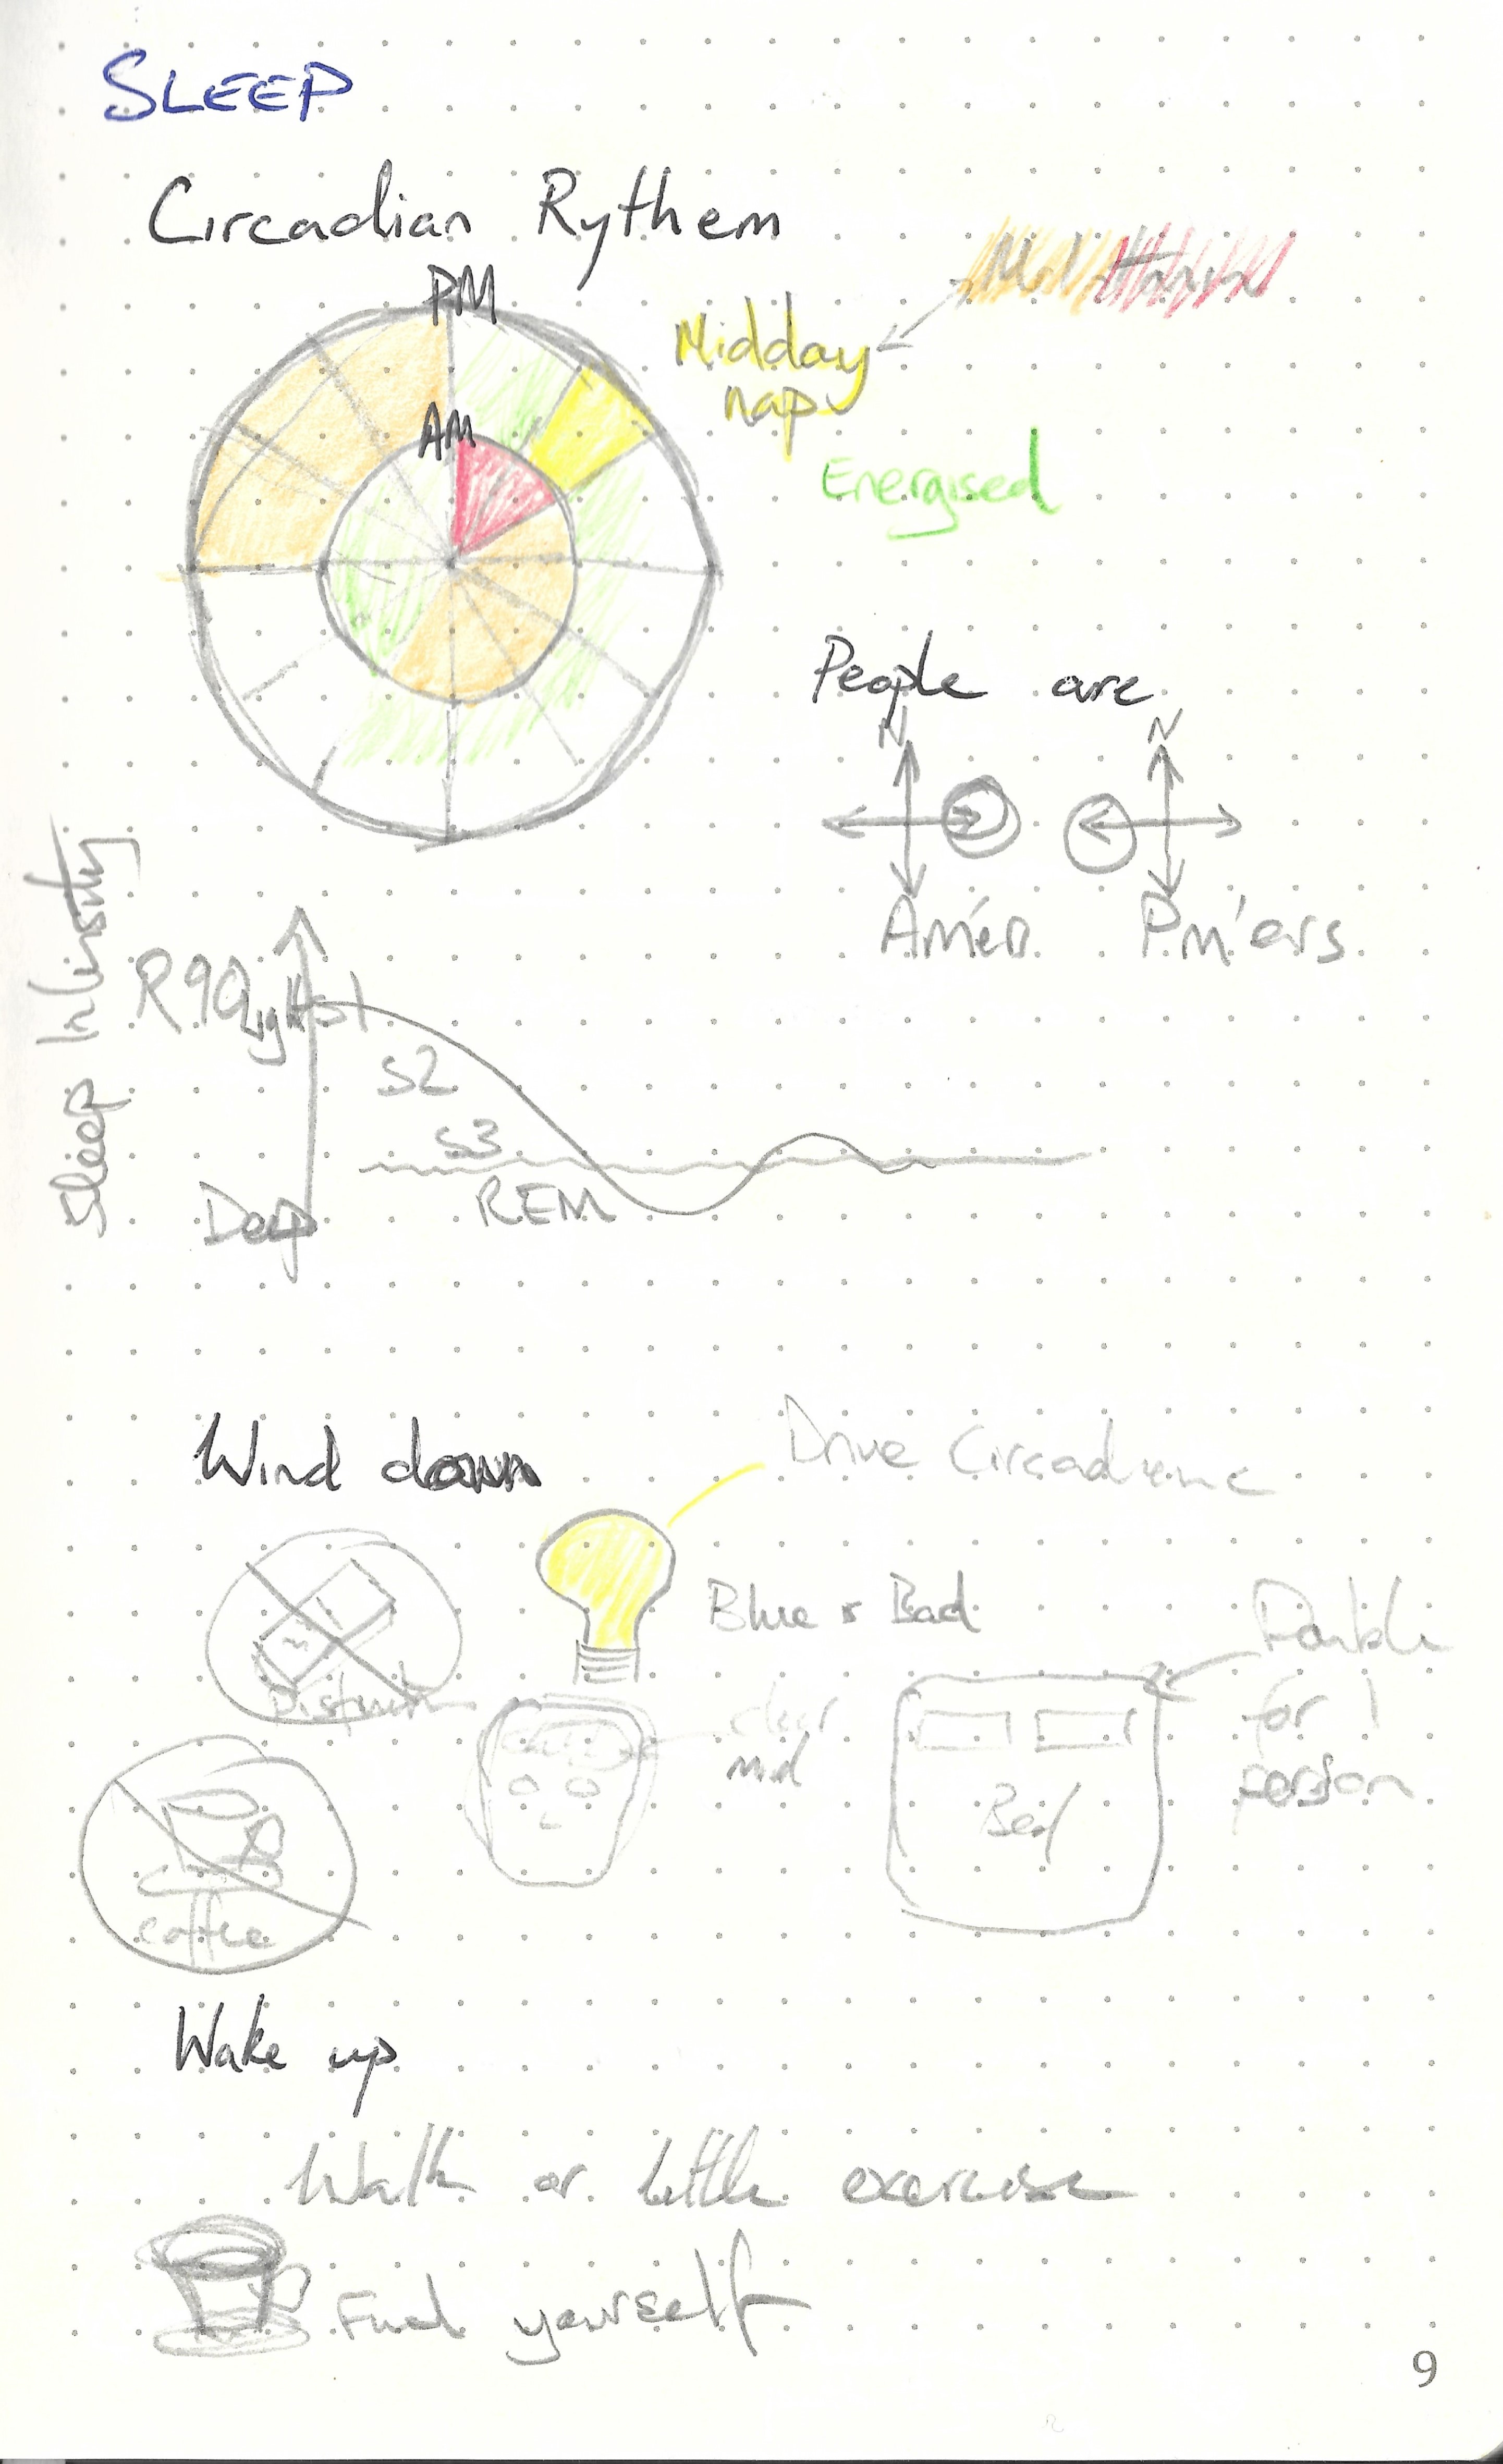 SLEEP
Circadian Rythem
PM
AM
Midday
nap
Energised
People are
N
N
Am'ers
Pm'ers
Sleep Intensity
R90
Lightest
S2
S3
REM
Deep
Wind down
Drive Circadienc
Blue is Bad
Double
for 1
person
clear
mind
Bed
coffee
Wake up
Walk or little exercise
Fuel yourself
9